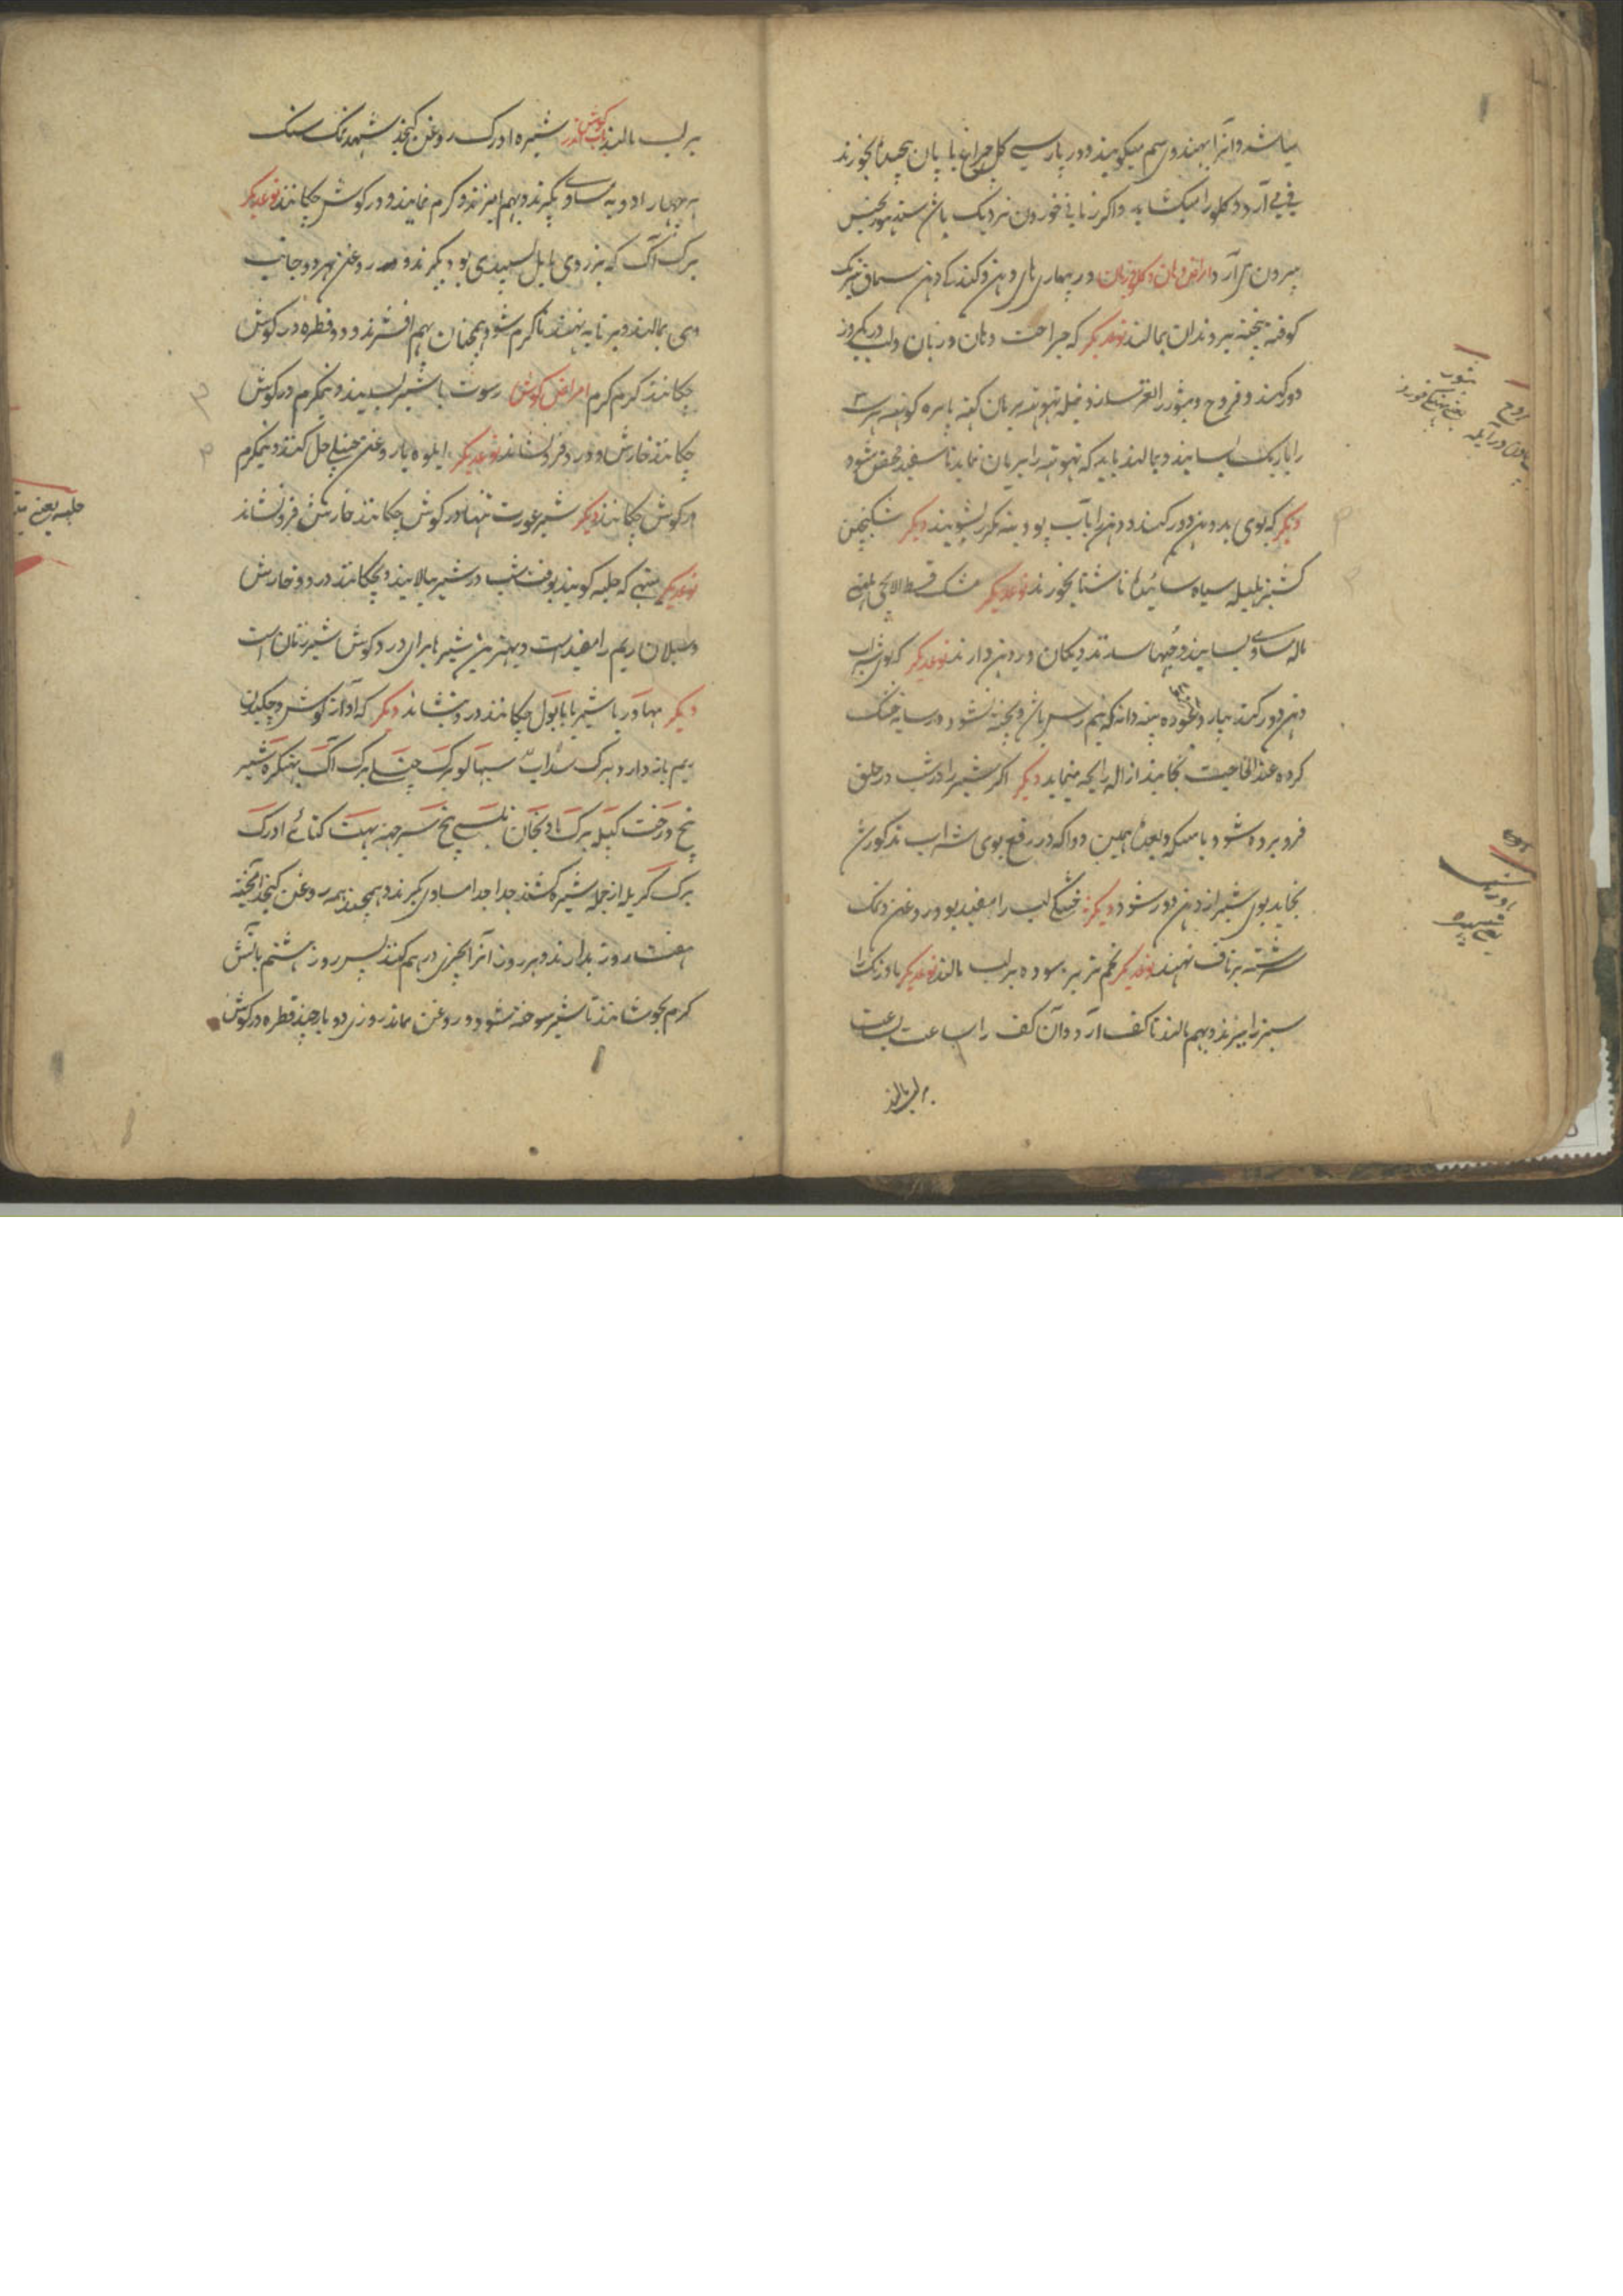 میباشد و آنرا بهندوی سم میگویند و در پارسی گل چراغ با پان پیچیده بخورند
قی می آرد و گلو را میکشاید و اگر زمانی خوردن نزدیک باشند
بیرون می آرد امراض دهان و کام و زبان در بیماری های دهن و گندگی دهن سماق
کوفته بیخته بر دندان بمالند نوعدیگر که جراحت دهان و زبان و لب در یکروز
دور کند و قروح و بثور را
را باریک بسایند و بمالند باید که را بریان نماید تا سفید محض شود
دیگر که بوی بد دهن دور کند دهن را بآب پودینه مکرر بشویند دیگر
کشنیز هلیله سیاه سائیده ناشتا بخورند نوعدیگر مشک قسط الایچی
مساوی بسایند و حبها سازند و یکان در دهن دارند نوعدیگر که بوی شراب
دهن دور کند بیارد غوزه پنبه دانه که نیم رس باشد و پخته نشود در سایه خشک
کرده عند الحاجت بخایند ازاله رایحه مینماید دیگر اگر شیر را در شب در حلق
فرو برده شود با مسکه و بعده همین دوا که در رفع بوی شراب مذکور شد
بخاید بوی شیر از دهن دور شود دیگر خشکی لب را مفید بود روغن و نمک
سرشته بر ناف نهند نوعدیگر تخم تربز سوده بر لب مالند نوعدیگر بادرنک را
سبز را ببرند و بهم مالند تا کف آرد و آن کف را ساعت بساعت
بر لب مالند
قروح
بثور
بادرنک
بر لب مالند شیره ادرک روغن کنجد شهد نمک سنگ
هر چهار ادویه مساوی بگیرند و بهم آمیزند و گرم نمایند و در گوش چکانند نوعدیگر
برگ آک که بزردی مایل سپیدی بود بگیرند و روغن بهر دو جانب
وی بمالند و بر تابه نهند تا گرم شود همچنان بهم افشرند و دو قطره در گوش
چکانند گرم گرم امراض گوش رسوت با شیر بسایند و نیمگرم در گوش
چکانند خارش و درد فرو نشاند نوعدیگر ایلوه با روغن چنبیلی حل کنند و نیمگرم
در گوش چکانند دیگر شیر عورت تنها در گوش چکانند خارش فرو نشاند
نوعدیگر میتهی که حلبه گویند بوقت شب در شیر بیالایند و بچکانند درد و خارش
و سیلان ریم را مفید است و بهترین شیرها برای درد گوش شیر زنان است
دیگر مهاور با شیر یا با بول چکانند درد بنشاند دیگر که آواز گوش و چکیدن
ریم باز دارد برگ سداب سنبهالو برگ چنبیلی برگ آک بهنگره شیر
بیخ درخت کیله برگ بادنجان تلسی بیخ سهجنه بهت کتائی ادرک
برگ کریله از جمله شیره کشند جدا جدا مساوی گیرند و همچند همه روغن کنجد آمیخته
هفت روز بدارند و هر روز آنرا بچیزی درهم کنند پس روز هشتم بآتش
گرم بجوشانند تا شیر سوخته شود و روغن ماند روزی دو بار چند قطره در گوش
حلبه یعنی